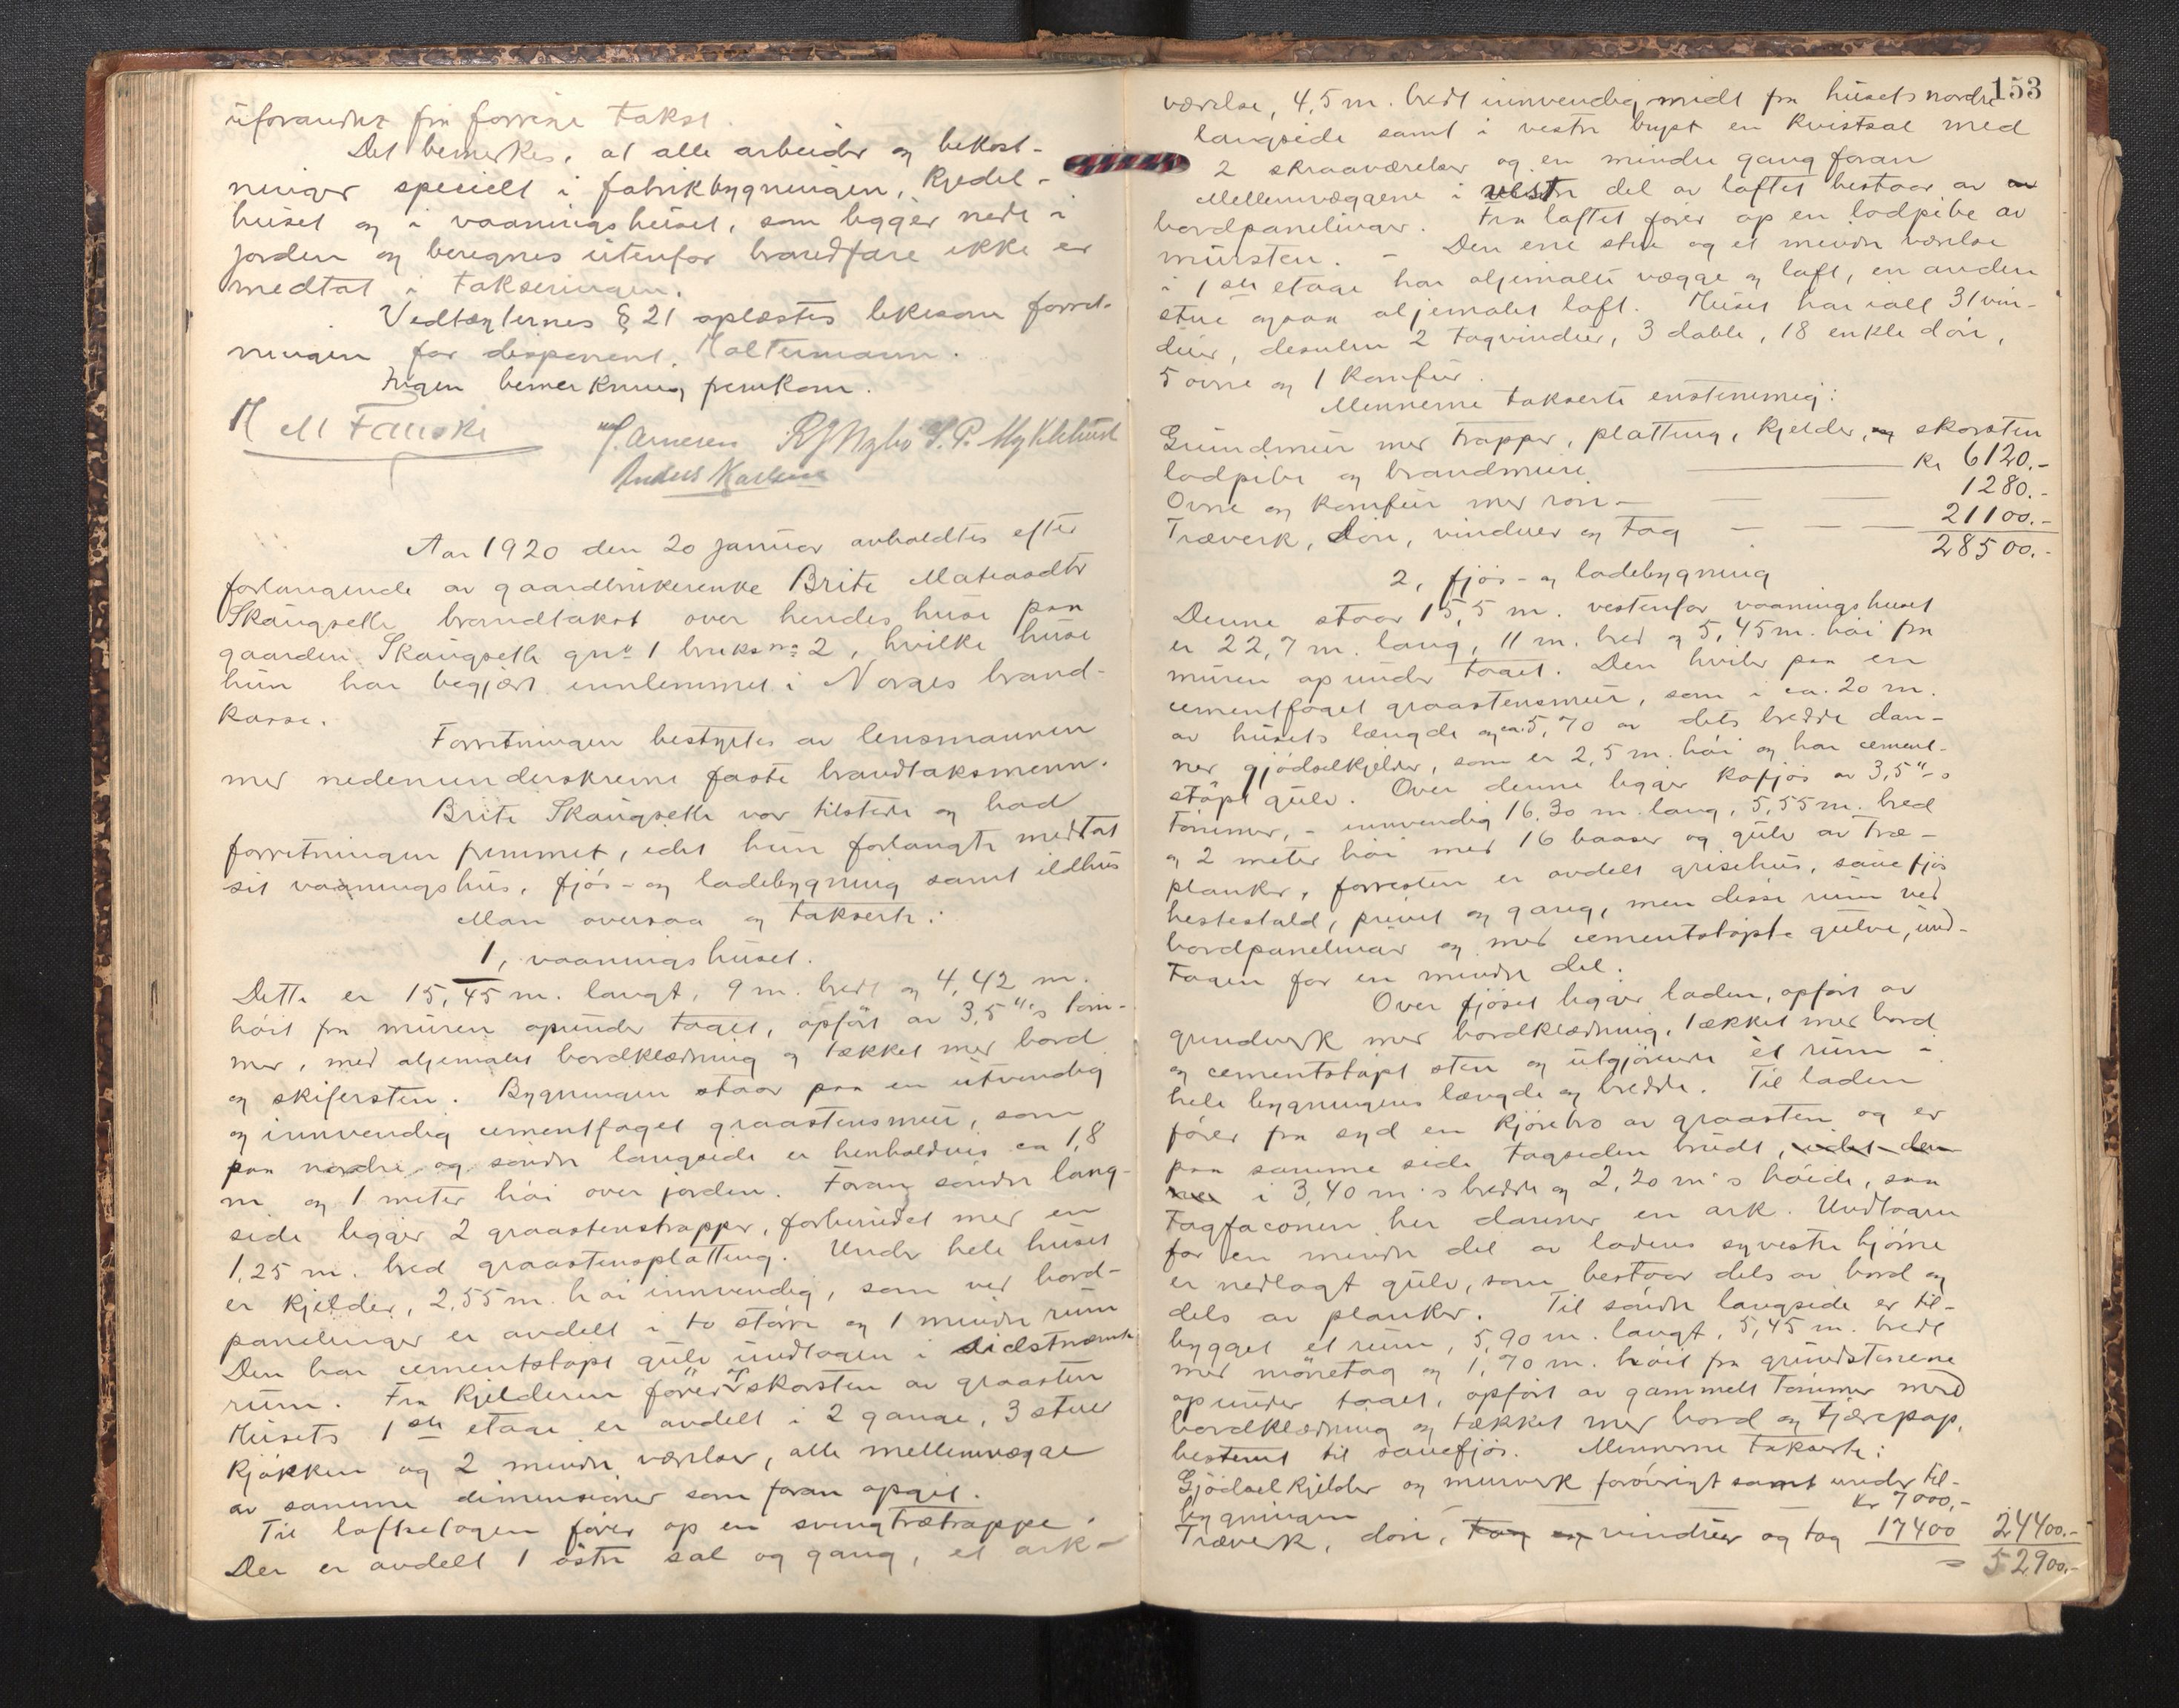 uforandret fra forrige takst.
Det bemerkes, at alle arbeider og bekost-
ninger specielt i fabrikbygningen, Kjedel-
huset og i vaaningshuset, som ligger nede i
jorden og beregnes utenfor brandfare ikke er
medtat i takseringen.
Vedtægternes § 21 oplæstes likesom forret-
ningen for disponent Haltermann.
Ingen bemerkning fremkom.
H M Fauske J. Arnesen R J Nybø S. P. Myklebust
Anders Karlsen
Aar 1920 den 20 januar avholdtes efter
forlangende av gaardbrukerenke Brite Matiasdtr
Skaugseth brandtakst over hendes huse paa
gaarden Skaugseth gno 1 bruksno 2, hvilke huse
hun har begjært innlemmet i Norges brand-
kasse.
Forretningen bestyrtes av lensmannen
med nedenunderskrevne faste brandtaksmenn.
Brite Skaugseth var tilstede og bad
forretningen fremmet, idet hun forlangte medtat
sit vaaningshus, fjøs- og ladebygning samt ildhus
Man oversaa og takserte:
1, vaaningshuset.
Dette er 15,45 m. langt, 9 m. bredt og 4,42 m.
høit fra muren opunder taget, opført av 3,5"'s tøm-
mer, med oljemalet bordklædning og tækket med bord
og skifersten. Bygningen staar paa en utvendig
og innvendig cementfuget graastensmur, som
paa nordre og søndre langside er henholdsvis ca 1,8
m og 1 meter høi over jorden. Foran søndre lang-
side ligger 2 graastenstrapper, forbundet med en
1,25 m. bred graastensplatting. Under hele huset
er kjelder, 2,55 m. høi innvendig, som ved bord-
panelinger er avdelt i to større og 1 mindre rum
Den har cementstøpt gulv undtagen i sidstnævnte
rum. Fra kjelderen fører op skorsten av graasten
Husets 1ste etage er avdelt i 2 gange, 3 stuer
kjøkken og 2 mindre værelser, alle mellemvægge
av samme dimensioner som foran opgit.
Til loftsetagen fører op en svingtrætrappe.
Der er avdelt 1 østre sal og gang, et ark-
153
værelse, 4,5 m. bredt innvendig midt fra husets nordre
langside samt i vestre bryst en kvistsal med
2 skraaværelser og en mindre gang foran
Mellemvæggene i vestre del av loftet bestaar av
bordpanelinger. Fra loftet fører op en lodpibe av
mursten. - Den ene stue og et mindre værelse
i 1ste etage har oljemalte vægge og loft, en anden
stue ogsaa oljemalet loft. Huset har ialt 31 vin-
duer, desuten 2 tagvinduer, 3 doble, 18 enkle døre,
5 ovne og 1 komfur.
Mennerne takserte enstemmig:
Grundmur med trapper, platting, kjelder, og skorsten
lodpibe og brandmure — kr 6120.-
Ovne og komfur med rør — 1280.-
Træverk, døre, vinduer og tag — 21100.-
28500.-
2, fjøs- og ladebygning
Denne staar 15,5 m. vestenfor vaaningshuset
er 22,7 m. lang, 11 m. bred og 5,45 m. høi fra
muren opunder taget. Den hviler paa en
cementfuget graastensmur, som i ca. 20 m.
av husets længde og ca. 5,70 av dets bredde dan-
ner gjødselkjelder, som er 2,5 m. høi og har cement-
støpt gulv. Over denne ligger kofjøs av 3,5"s
tømmer, - innvendig 16,30 m. lang, 5,55 m. bred
og 2 meter høi med 16 baaser og gulv av træ-
planker, forresten er avdelt grisehus, sauefjøs
hestestald, privet og gang, men disse rum ved
bordpanelinger og med cementstøpte gulve, und-
tagen for en mindre del.
Over fjøset ligger laden, opført av
grundverk med bordklædning, tækket med bord
og cementstøpt sten og utgjørende et rum i
hele bygningens længde og bredde. Til laden
fører fra syd en kjørebro av graasten og er
paa samme side tagsiden brudt, idet den
i 3,40 m's bredde og 2,20 m's høide, saa
tagfaconen her danner en ark. Undtagen
for en mindre del av ladens sydvestre hjørne
er nedlagt gulv, som bestaar dels av bord og
dels av planker. Til søndre langside er til-
bygget et rum, 5,90 m. langt, 5,45 m. bredt
med mønetag og 1,70 m. høit fra grundstenene
opunder taget, opført av gammelt tømmer med
bordklædning og tækket med bord og tjærepap,
bestemt til sauefjøs. Mennerne takserte:
Gjødselkjelder og murverk forøvrigt samt under til-
bygningen kr 7000,-
Træverk, døre, tag og vinduer og tag 17400 24400.-
= 52900.-